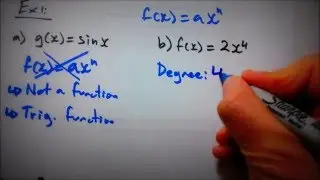 Ex1:
f(x) = axⁿ
a) g(x) = sin x
f(x) = axⁿ
↳ Not a function
↳ Trig. function
b) f(x) = 2x⁴
Degree: 4
Sharpie